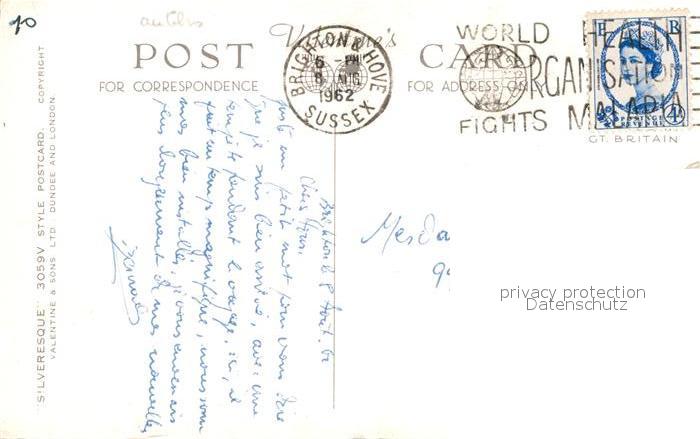 10
POST Valentine's CARD
FOR CORRESPONDENCE
FOR ADDRESS ONLY
BRIGHTON & HOVE
6 - PM
8 AUG
1962
SUSSEX
WORLD HEALTH
ORGANISATION
FIGHTS MALARIA
E R
POSTAGE
REVENUE
4D
GT. BRITAIN
"SILVERESQUE" 3059V STYLE POSTCARD. COPYRIGHT
VALENTINE & SONS LTD. DUNDEE AND LONDON
Brighton le 8 Août 62
Chers tous,
Juste un petit mot pour vous dire
que je suis bien arrivé, avec une
tempête pendant le voyage, ici, il
fait un temps magnifique, nous sommes
bien installés, je vous enverrai
plus longuement de mes nouvelles
Mesda
9
privacy protection
Datenschutz